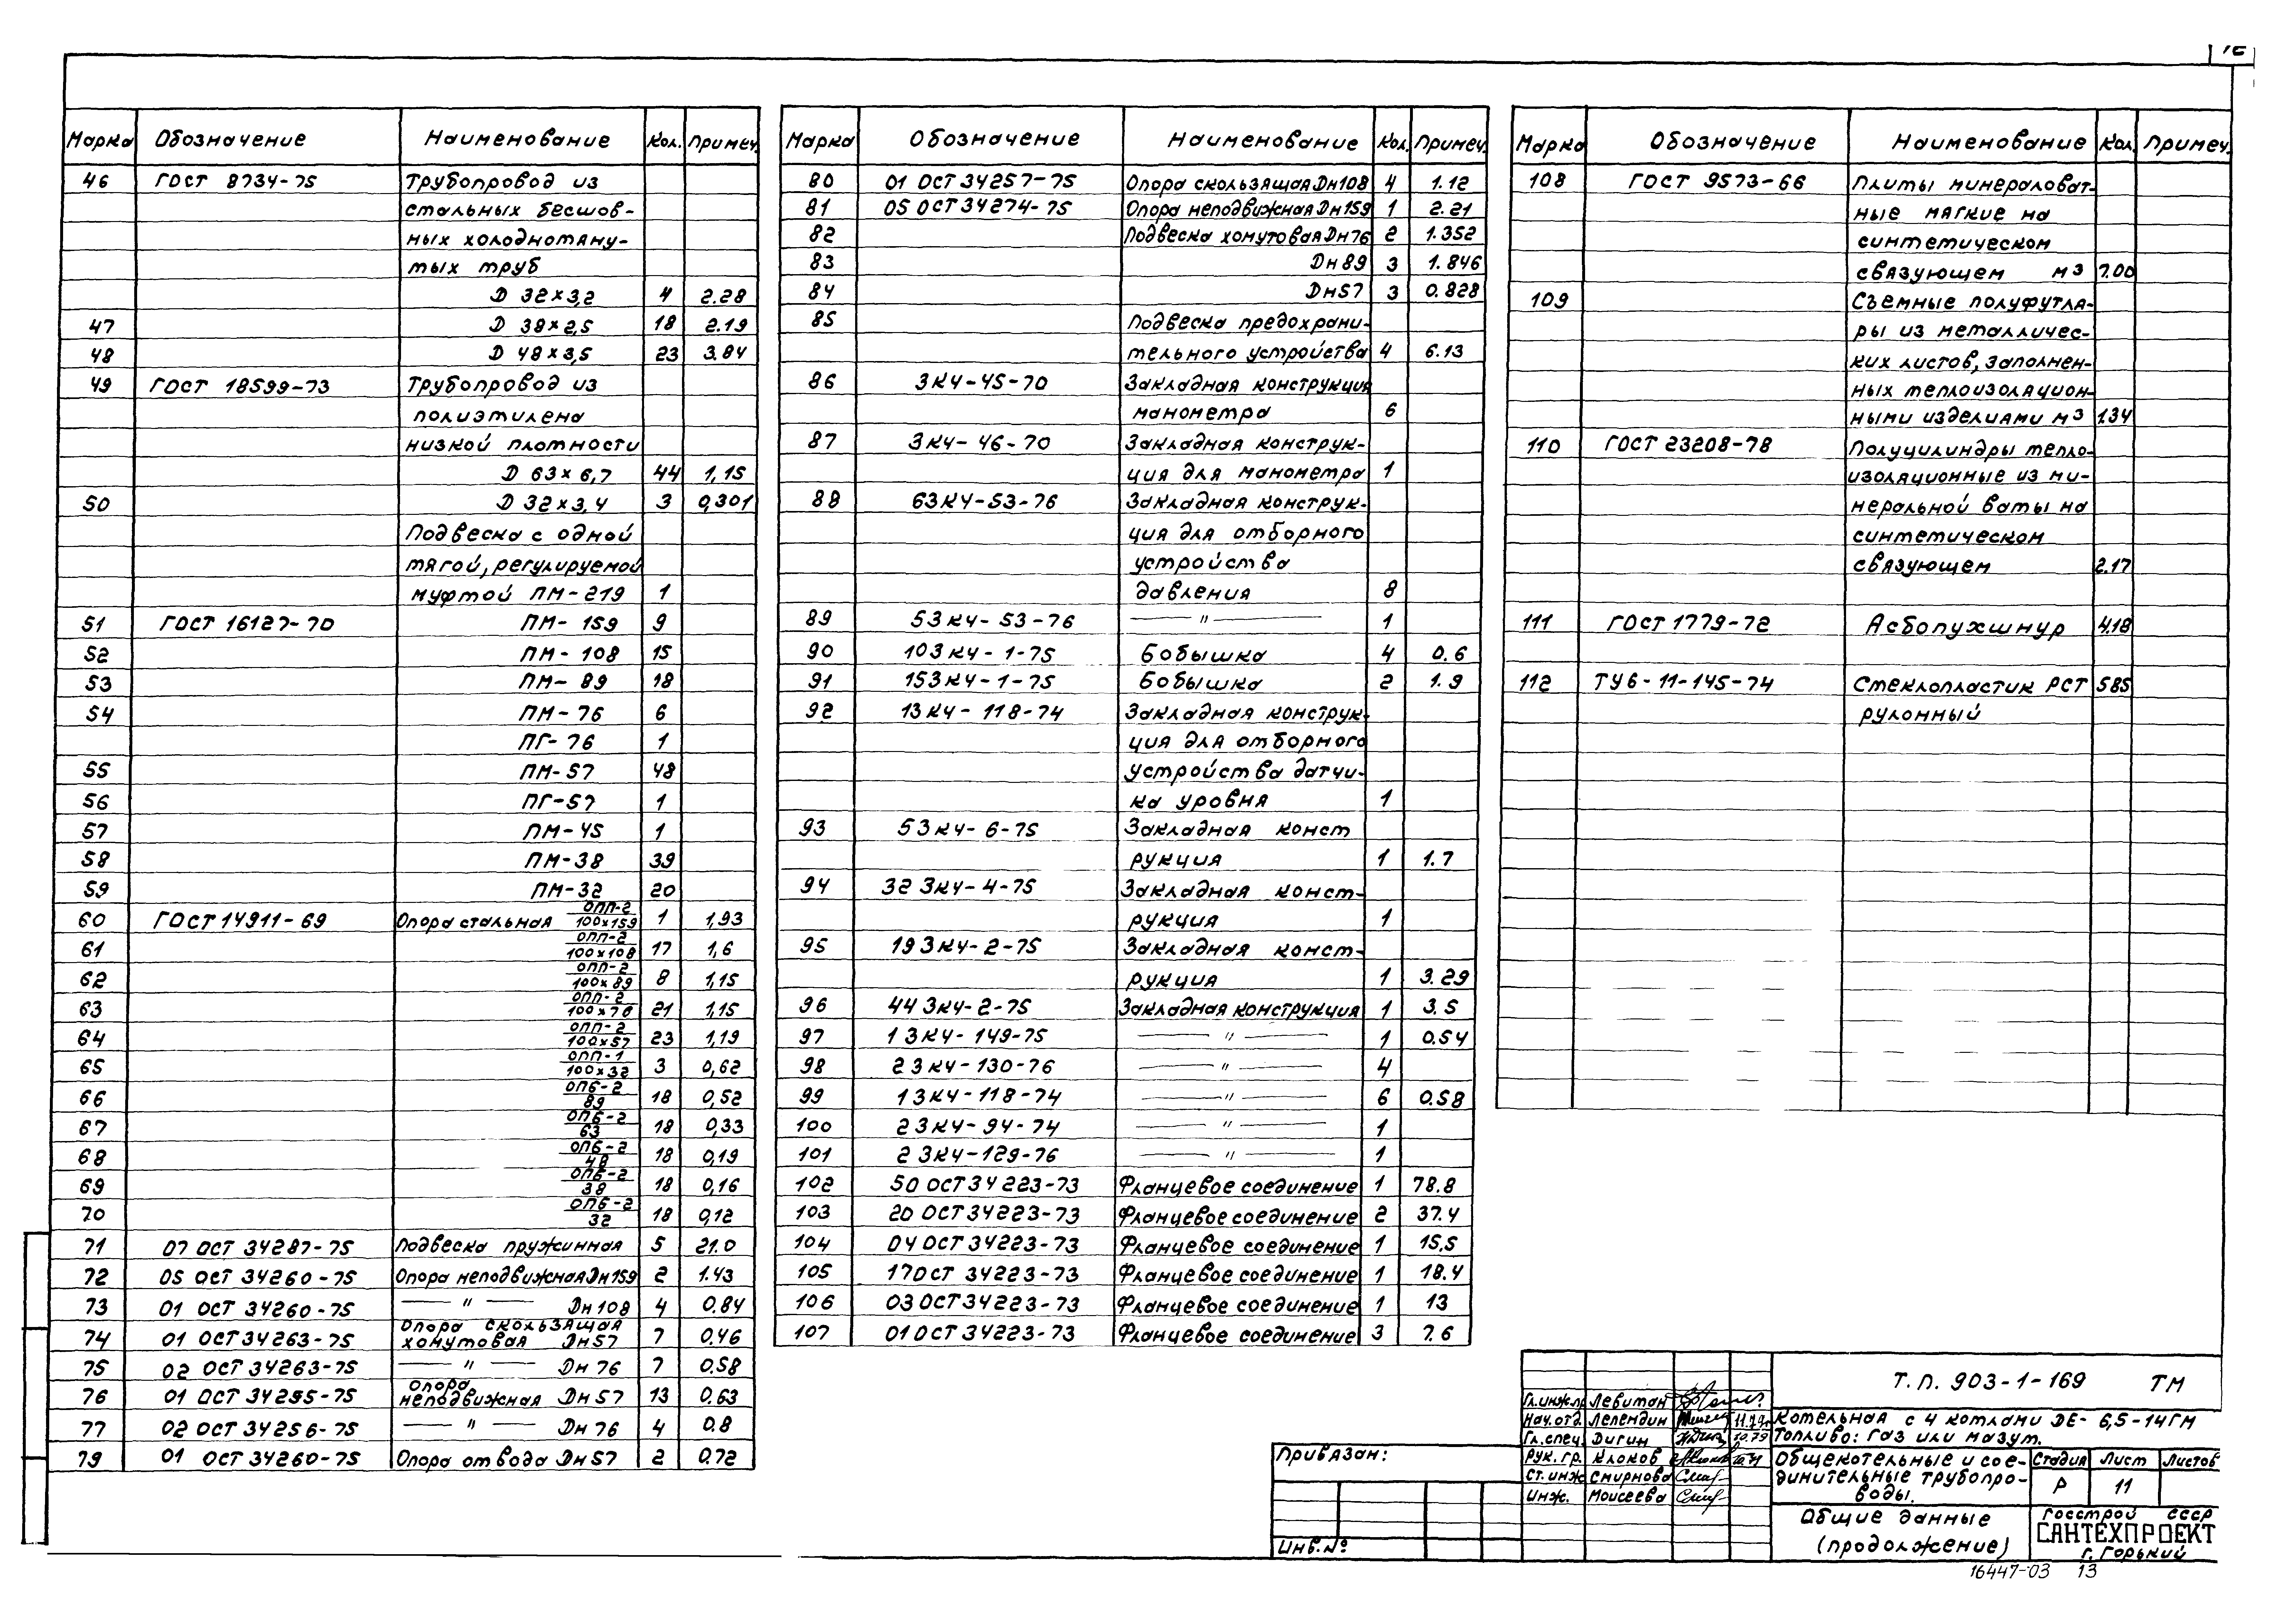 Марка Обозначение Наименование Кол. Примеч.
46 ГОСТ 8734-75 Трубопровод из
стальных бесшов-
ных холоднотяну-
тых труб
D 32×3,2 4 2.28
47 D 38×2,5 18 2.19
48 D 48×3,5 23 3.84
49 ГОСТ 18599-73 Трубопровод из
полиэтилена
низкой плотности
D 63×6,7 44 1,15
50 D 32×3,4 3 0,301
Подвеска с одной
тягой, регулируемой
муфтой ПМ-219 1
51 ГОСТ 16127-70 ПМ-159 9
52 ПМ-108 15
53 ПМ-89 18
54 ПМ-76 6
ПГ-76 1
55 ПМ-57 48
56 ПГ-57 1
57 ПМ-45 1
58 ПМ-38 39
59 ПМ-32 20
60 ГОСТ 14911-69 Опора стальная ОПП-2 100×159 1 1,93
61 ОПП-2 100×108 17 1,6
62 ОПП-2 100×89 8 1,15
63 ОПП-2 100×76 21 1,15
64 ОПП-2 100×57 23 1,19
65 ОПП-1 100×32 3 0,62
66 ОПБ-2 89 18 0,52
67 ОПБ-2 63 18 0,33
68 ОПБ-2 48 18 0,19
69 ОПБ-2 38 18 0,16
70 ОПБ-2 32 18 0,12
71 07 ОСТ 34287-75 Подвеска пружинная 5 21.0
72 05 ОСТ 34260-75 Опора неподвижная Дн159 2 1.43
73 01 ОСТ 34260-75 — " — Дн108 4 0.84
74 01 ОСТ 34263-75 Опора скользящая хомутовая Дн57 7 0.46
75 02 ОСТ 34263-75 — " — Дн76 7 0.58
76 01 ОСТ 34295-75 Опора неподвижная Дн57 13 0.63
77 02 ОСТ 34256-75 — " — Дн76 4 0.8
79 01 ОСТ 34260-75 Опора отвода Дн57 2 0.72
Марка Обозначение Наименование Кол. Примеч.
80 01 ОСТ 34257-75 Опора скользящая Дн108 4 1.12
81 05 ОСТ 34274-75 Опора неподвижная Дн159 1 2.21
82 Подвеска хомутовая Дн76 2 1.352
83 Дн89 3 1.846
84 Дн57 3 0.828
85 Подвеска предохрани-
тельного устройства 4 6.13
86 ЗК4-45-70 Закладная конструкция
манометра 6
87 ЗК4-46-70 Закладная конструк-
ция для манометра 1
88 6ЗК4-53-76 Закладная конструк-
ция для отборного
устройства
давления 8
89 5ЗК4-53-76 — " — 1
90 10ЗК4-1-75 Бобышка 4 0.6
91 15ЗК4-1-75 Бобышка 2 1.9
92 1ЗК4-118-74 Закладная конструк-
ция для отборного
устройства датчи-
ка уровня 1
93 5ЗК4-6-75 Закладная конст
рукция 1 1.7
94 32 ЗК4-4-75 Закладная конст-
рукция 1
95 19 ЗК4-2-75 Закладная конст-
рукция 1 3.29
96 44 ЗК4-2-75 Закладная конструкция 1 3.5
97 1 ЗК4-149-75 — " — 1 0.54
98 2 ЗК4-130-76 — " — 4
99 1 ЗК4-118-74 — " — 6 0.58
100 2 ЗК4-94-74 — " — 1
101 2 ЗК4-129-76 — " — 1
102 50 ОСТ 34223-73 Фланцевое соединение 1 78.8
103 20 ОСТ 34223-73 Фланцевое соединение 2 37.4
104 04 ОСТ 34223-73 Фланцевое соединение 1 15.5
105 17 ОСТ 34223-73 Фланцевое соединение 1 18.4
106 03 ОСТ 34223-73 Фланцевое соединение 1 13
107 01 ОСТ 34223-73 Фланцевое соединение 3 7.6
Марка Обозначение Наименование Кол. Примеч.
108 ГОСТ 9573-66 Плиты минераловат-
ные мягкие на
синтетическом
связующем м3 7.00
109 Съемные полуфутля-
ры из металличес-
ких листов, заполнен-
ных теплоизоляцион-
ными изделиями м3 1.34
110 ГОСТ 23208-78 Полуцилиндры тепло-
изоляционные из ми-
неральной ваты на
синтетическом
связующем 2.17
111 ГОСТ 1779-72 Асбопухшнур 4.18
112 ТУ6-11-145-74 Стеклопластик РСТ 585
рулонный
Привязан:
Инв.№
Гл.инж.пр Левитан
Нач.отд. Лепендин 11.79г
Гл.спец. Дигин 10.79
Рук.гр. Клоков
Ст.инж Смирнова
Инж. Моисеева
Т.П. 903-1-169 ТМ
Котельная с 4 котлами ДЕ-6,5-14ГМ
Топливо: газ или мазут.
Общекотельные и сое-
динительные трубопро-
воды.
Стадия Лист Листов
Р 11
Общие данные
(продолжение)
Госстрой СССР
САНТЕХПРОЕКТ
г. Горький
16447-03 13